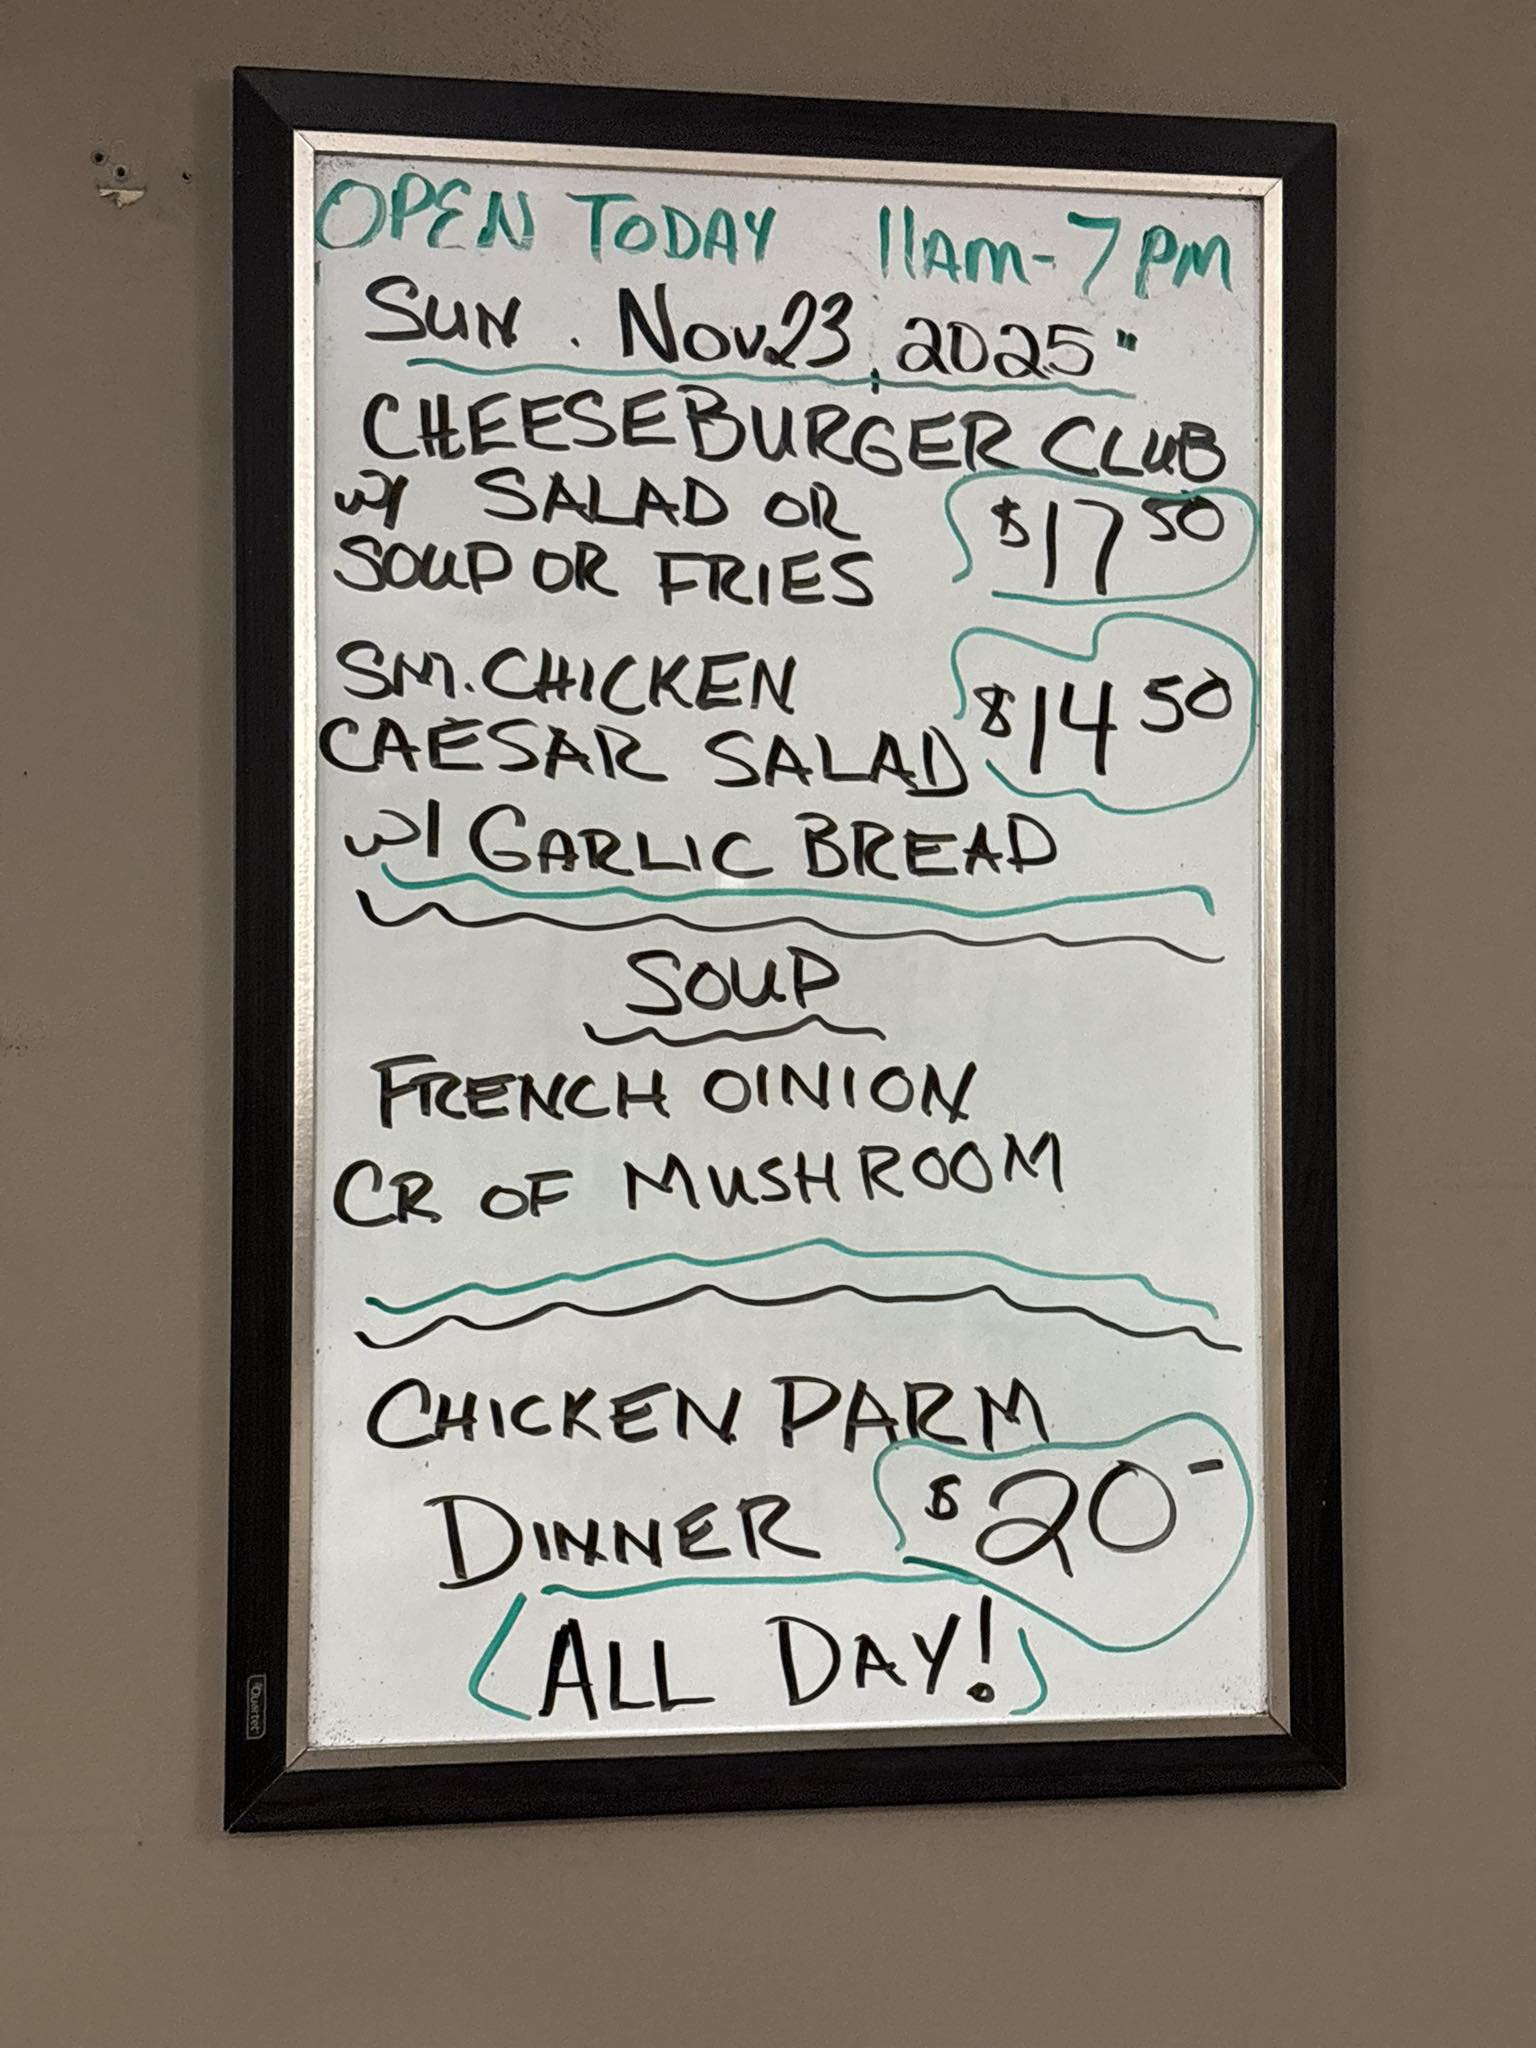 OPEN TODAY 11AM-7PM
SUN. NOV 23, 2025"
CHEESEBURGER CLUB
W/ SALAD OR
SOUP OR FRIES $17 50
SM. CHICKEN
CAESAR SALAD $14 50
W/ GARLIC BREAD
SOUP
FRENCH OINION
CR OF MUSHROOM
CHICKEN PARM
DINNER $20-
(ALL DAY!)
Quartet